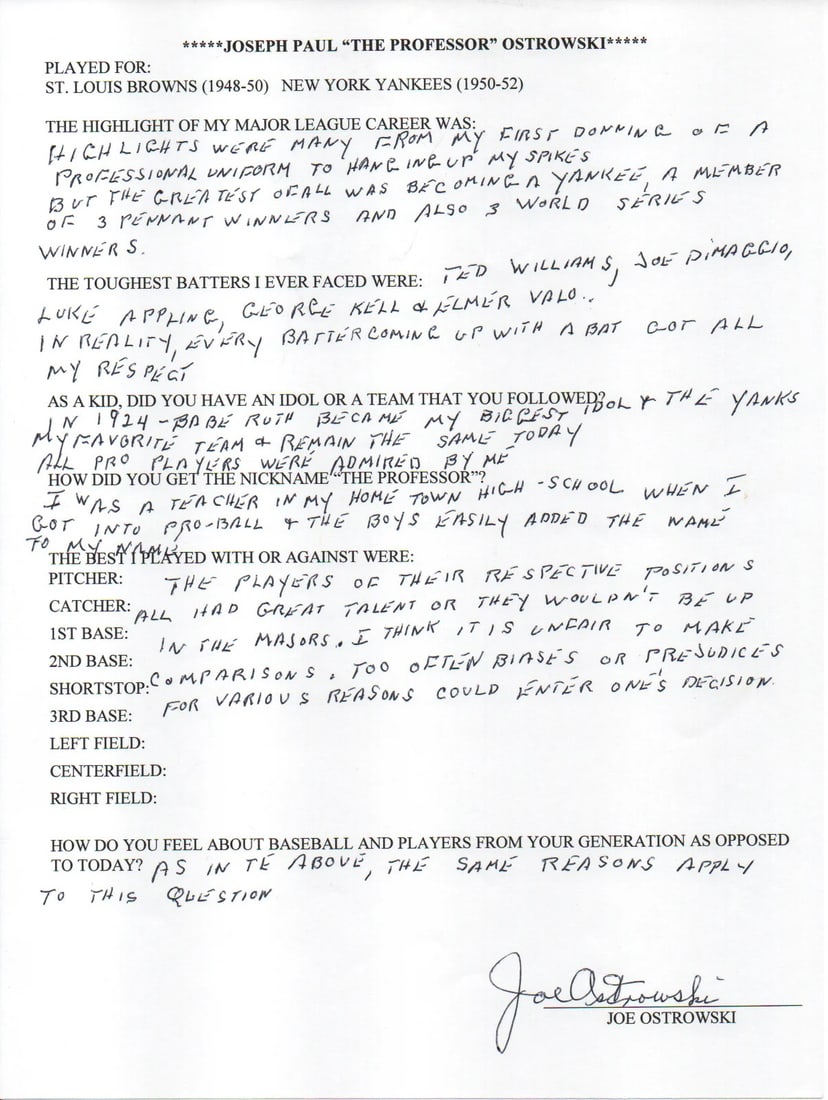 *****JOSEPH PAUL “THE PROFESSOR” OSTROWSKI*****
PLAYED FOR:
ST. LOUIS BROWNS (1948-50) NEW YORK YANKEES (1950-52)
THE HIGHLIGHT OF MY MAJOR LEAGUE CAREER WAS:
HIGHLIGHTS WERE MANY FROM MY FIRST DONNING OF A
PROFESSIONAL UNIFORM TO HANGING UP MY SPIKES
BUT THE GREATEST OF ALL WAS BECOMING A YANKEE, A MEMBER
OF 3 PENNANT WINNERS AND ALSO 3 WORLD SERIES
WINNERS.
THE TOUGHEST BATTERS I EVER FACED WERE: TED WILLIAMS, JOE DIMAGGIO,
LUKE APPLING, GEORGE KELL & ELMER VALO..
IN REALITY, EVERY BATTER COMING UP WITH A BAT GOT ALL
MY RESPECT
AS A KID, DID YOU HAVE AN IDOL OR A TEAM THAT YOU FOLLOWED?
IN 1924 - BABE RUTH BECAME MY BIGGEST IDOL & THE YANKS
MY FAVORITE TEAM & REMAIN THE SAME TODAY
ALL PRO PLAYERS WERE ADMIRED BY ME
HOW DID YOU GET THE NICKNAME “THE PROFESSOR”?
I WAS A TEACHER IN MY HOME TOWN HIGH-SCHOOL WHEN I
GOT INTO PRO-BALL & THE BOYS EASILY ADDED THE NAME
TO MY NAME
THE BEST I PLAYED WITH OR AGAINST WERE:
PITCHER: THE PLAYERS OF THEIR RESPECTIVE POSITIONS
CATCHER: ALL HAD GREAT TALENT OR THEY WOULDN'T BE UP
1ST BASE: IN THE MAJORS. I THINK IT IS UNFAIR TO MAKE
2ND BASE:
SHORTSTOP: COMPARISONS. TOO OFTEN BIASES OR PREJUDICES
3RD BASE: FOR VARIOUS REASONS COULD ENTER ONE'S DECISION.
LEFT FIELD:
CENTERFIELD:
RIGHT FIELD:
HOW DO YOU FEEL ABOUT BASEBALL AND PLAYERS FROM YOUR GENERATION AS OPPOSED
TO TODAY? AS IN TE ABOVE, THE SAME REASONS APPLY
TO THIS QUESTION
Joe Ostrowski
JOE OSTROWSKI